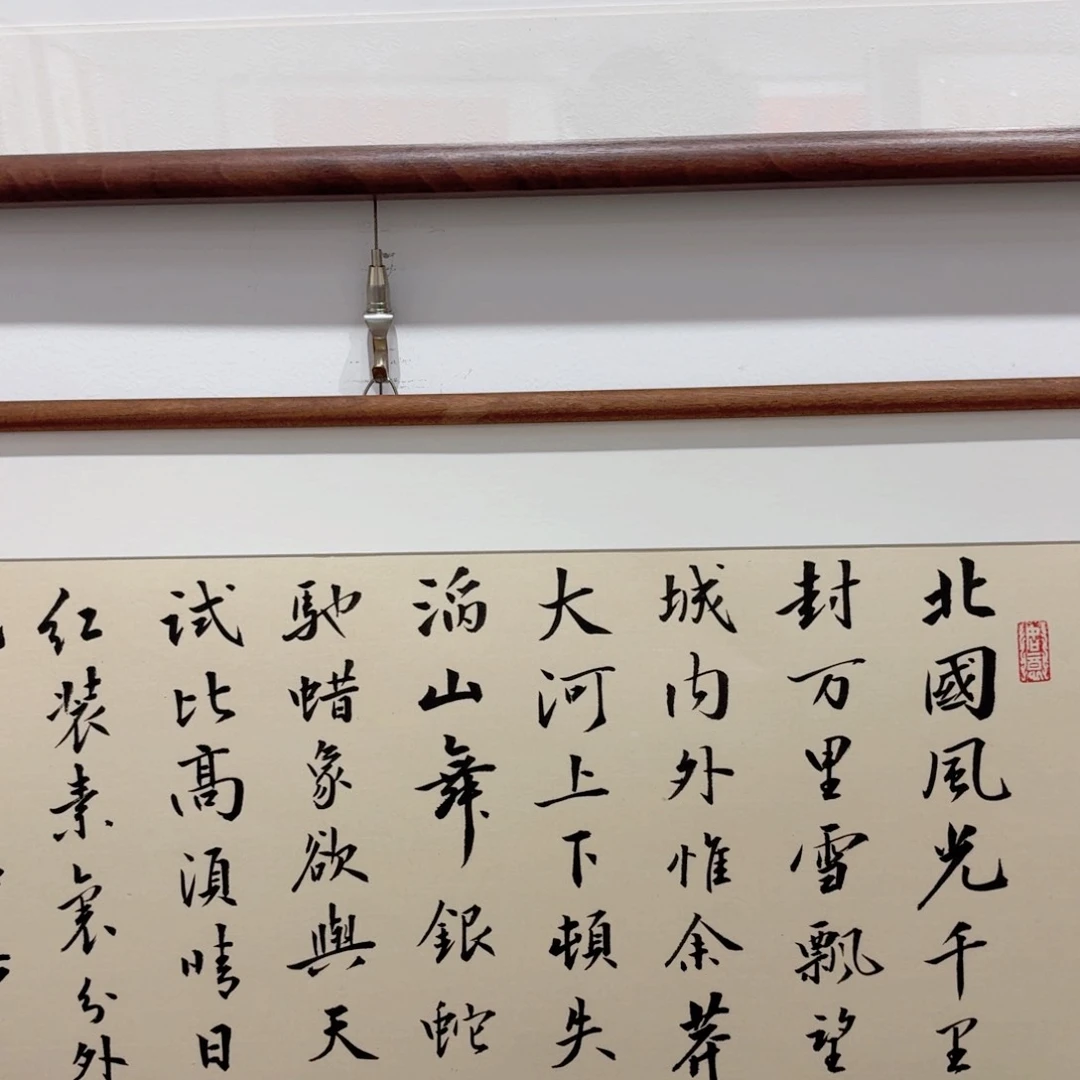 北國風光千里
封万里雪飄望
城内外惟余莽
大河上下頓失
滔山舞銀蛇
馳蜡象欲與天
试比高須晴日
红装素裹分外